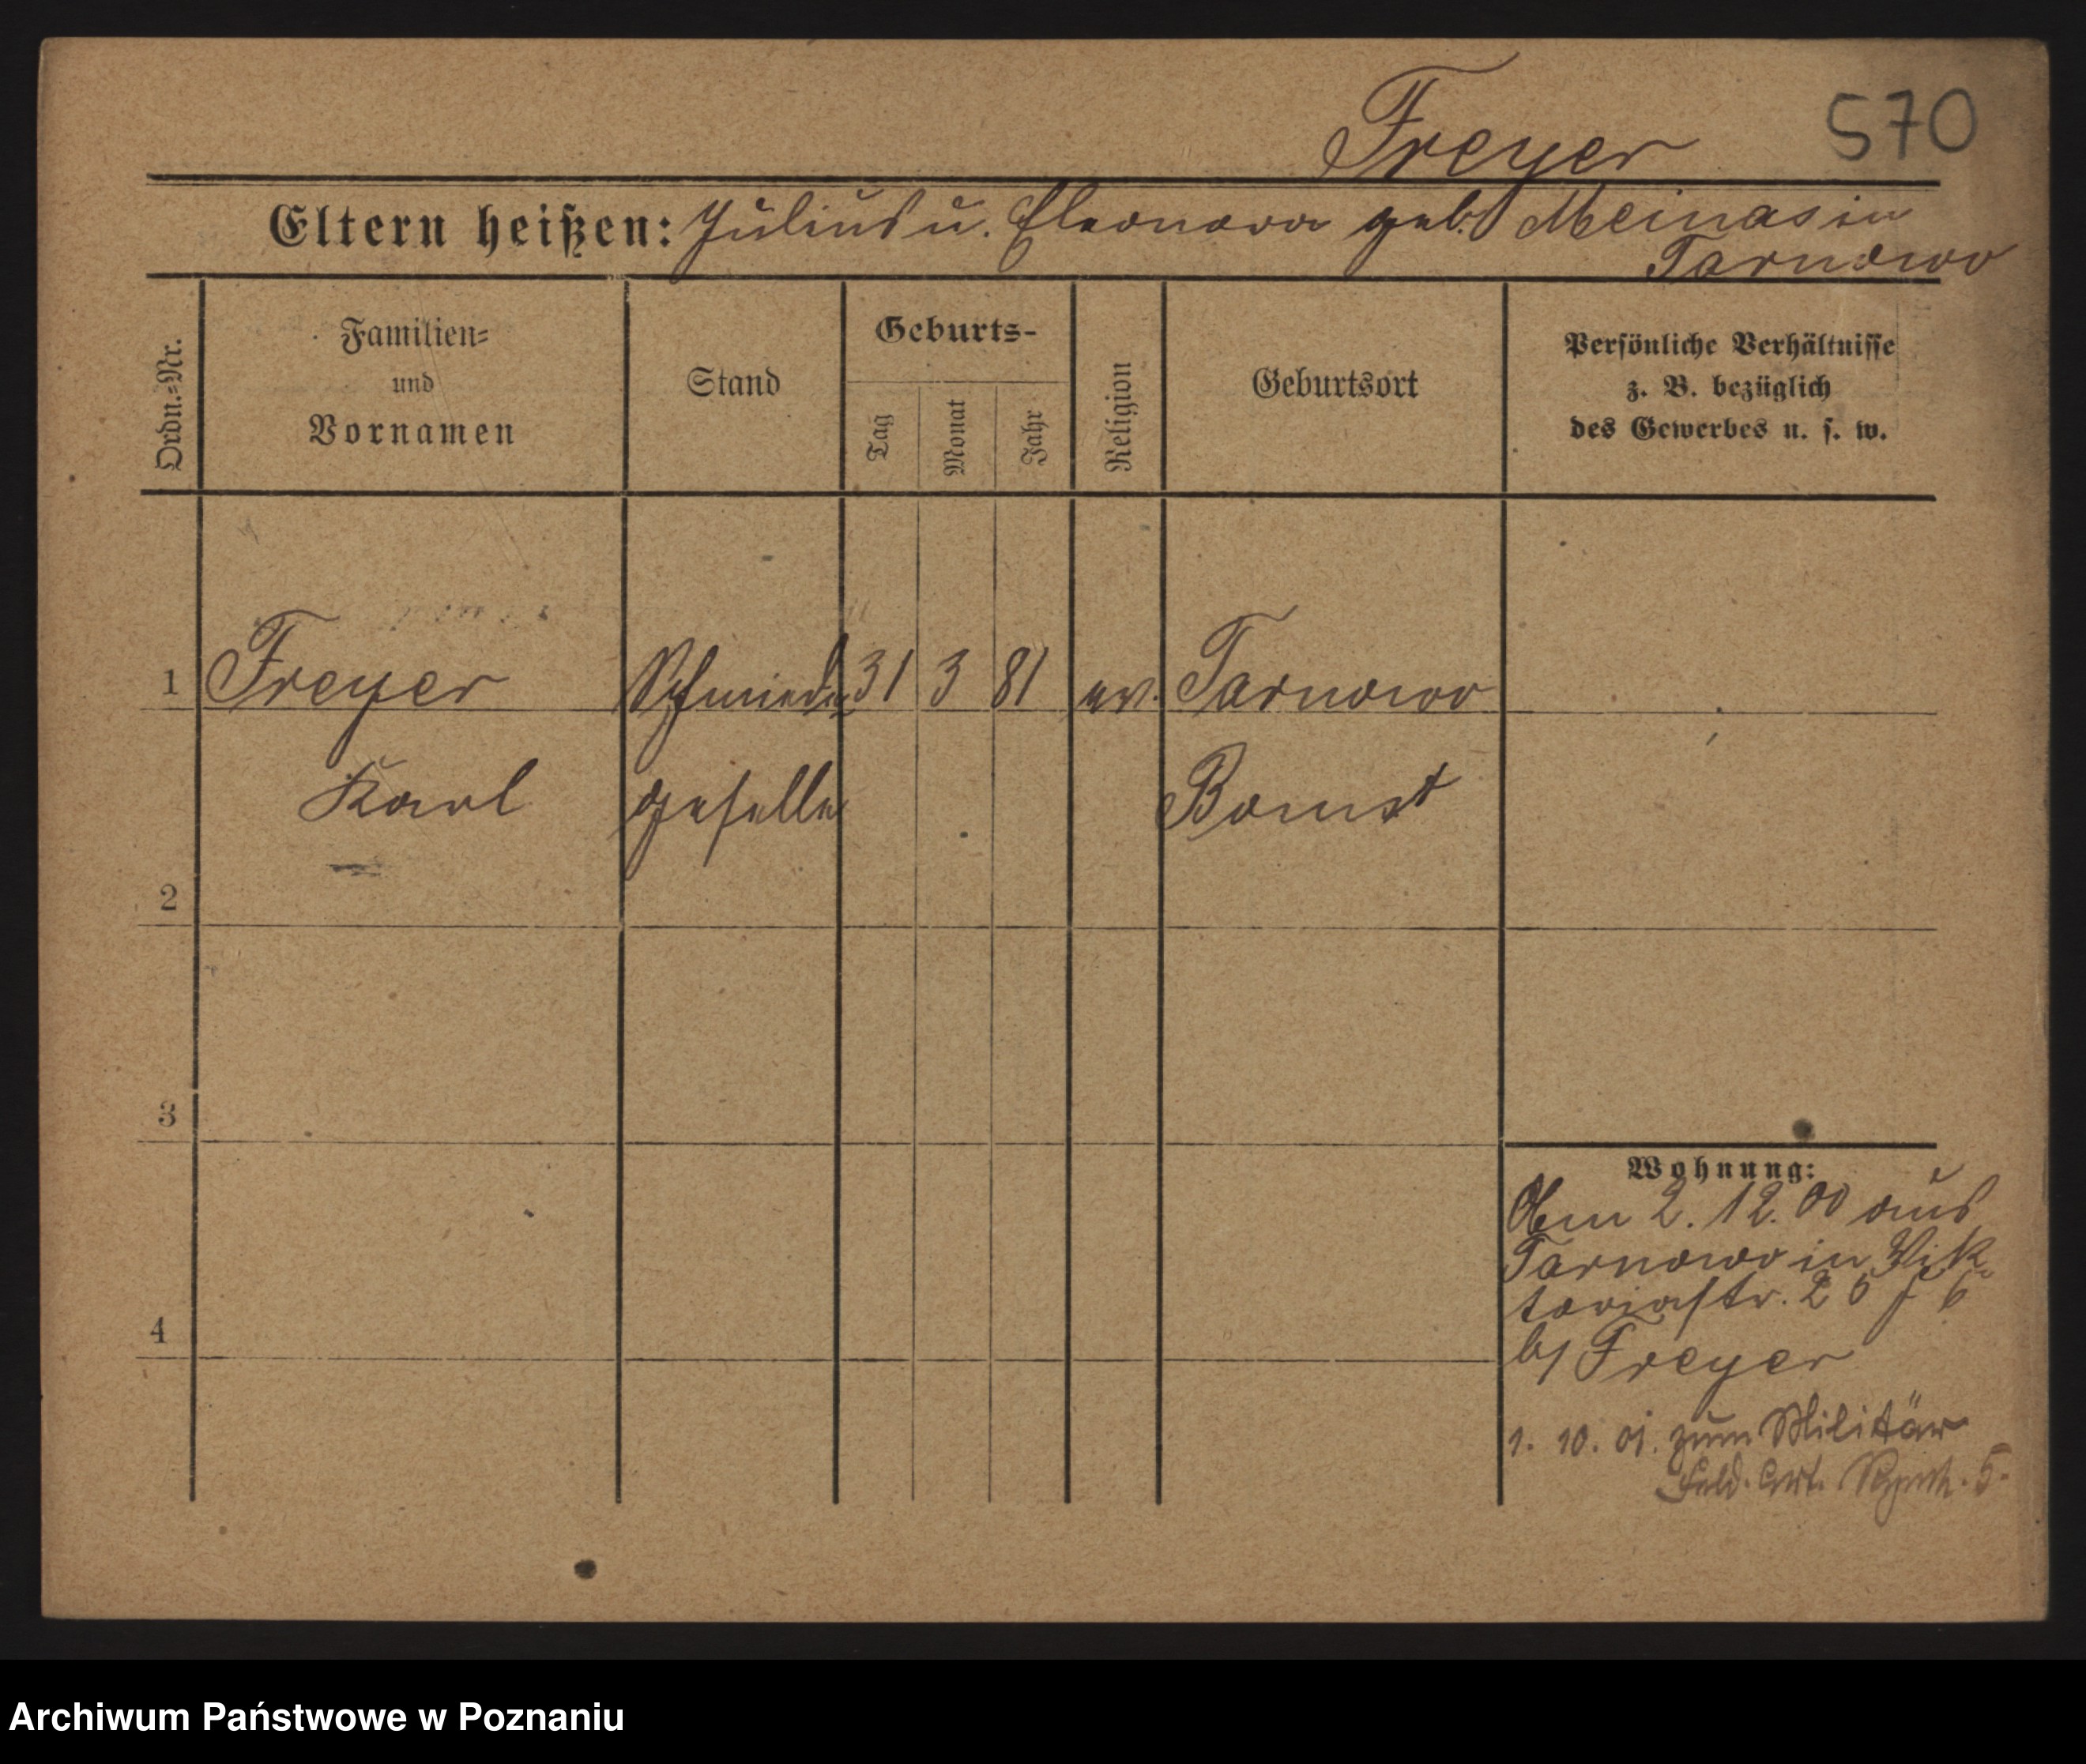 Freyer 570
Eltern heißen: Julius u. Eleonora geb. Meinas in
Tarnowo
Ordn.=Nr.
Familien=
und
Vornamen
Stand
Geburts-
Tag
Monat
Jahr
Religion
Geburtsort
Persönliche Verhältnisse
z. B. bezüglich
des Gewerbes u. s. w.
1 Freyer Schmiede 31 3 81 ev. Tarnowo
Karl geselle Bomst
2
3
4
Wohnung:
Am 2. 12. 00 aus
Tarnowo in Vik
toriastr. 26
b/ Freyer
1. 10. 01. zum Militär
Feld. Art. 5.
Archiwum Państwowe w Poznaniu